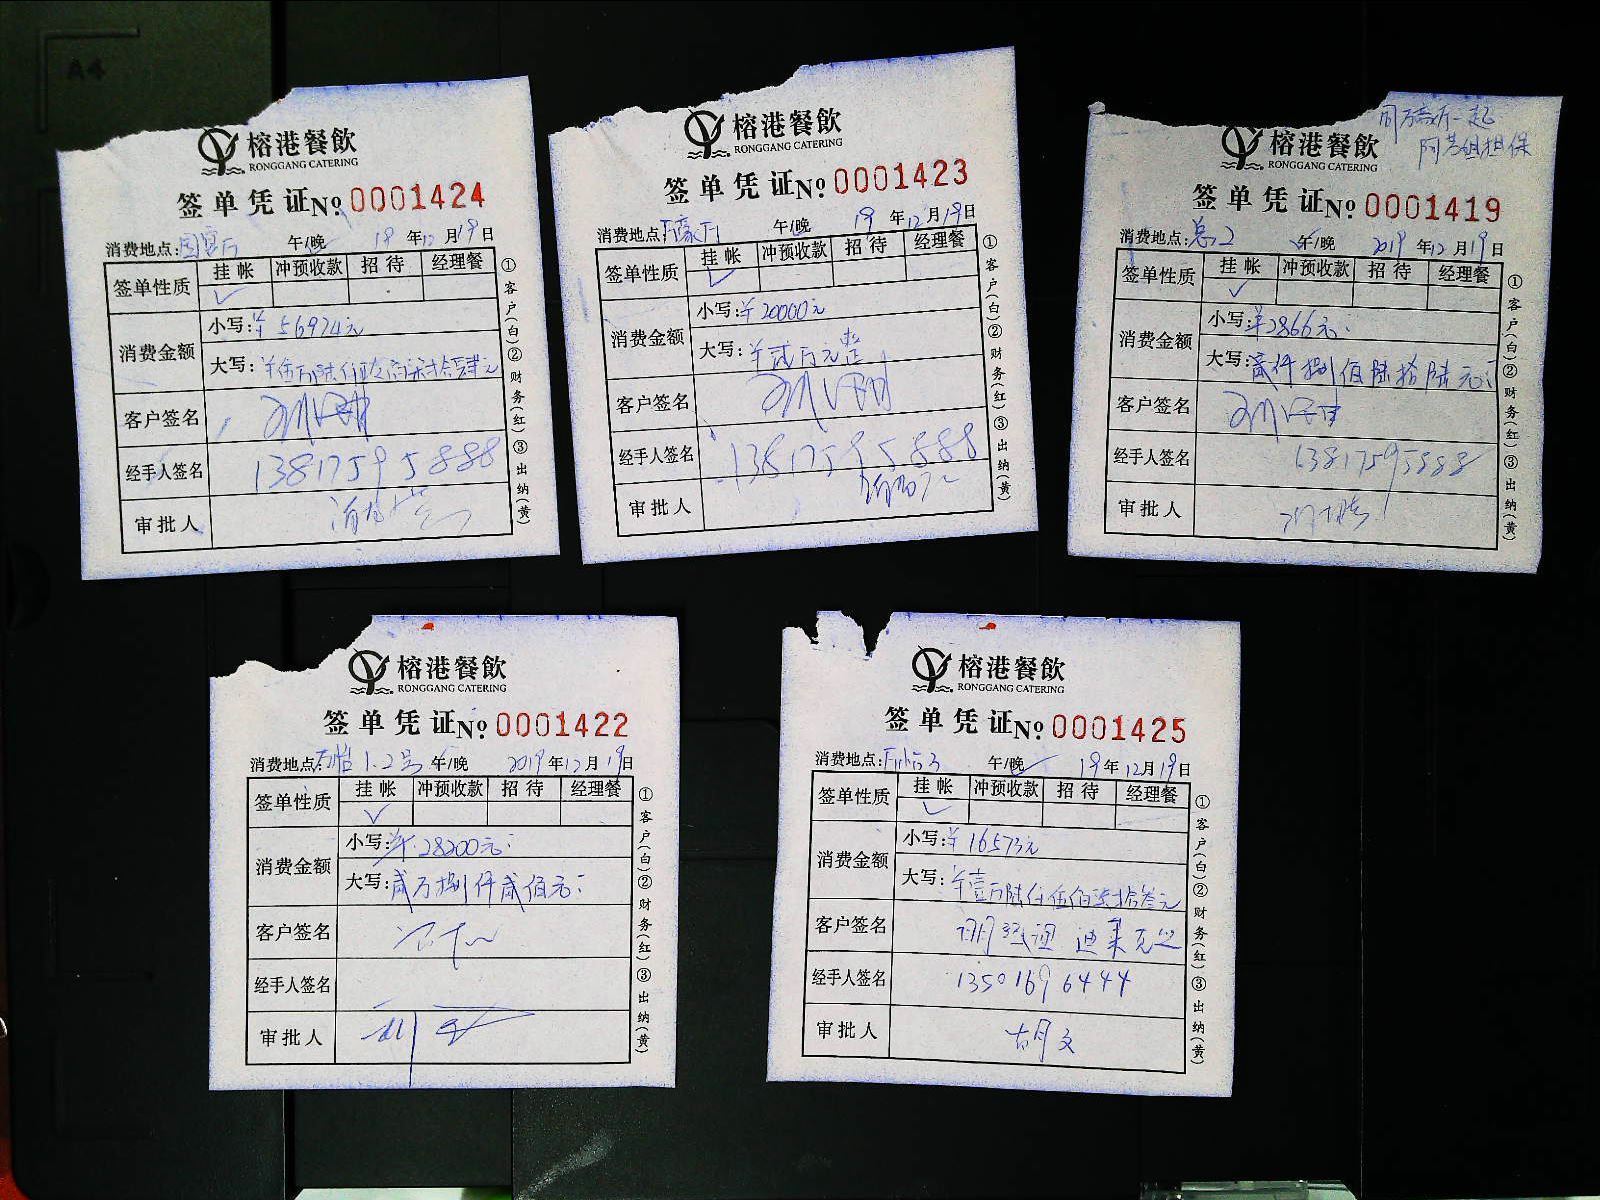 榕港餐飲
RONGGANG CATERING
签单凭证No 0001424
消费地点:国宴厅 午/晚 19年12月19日
签单性质 挂帐 冲预收款 招待 经理餐
✓
消费金额 小写:¥56974元
大写:
客户签名
经手人签名 13817595888
审批人
①客户(白)②财务(红)③出纳(黄)
榕港餐飲
RONGGANG CATERING
签单凭证No 0001423
消费地点:万豪厅 午/晚 19年12月19日
签单性质 挂帐 冲预收款 招待 经理餐
✓
消费金额 小写:¥20000元
大写:¥贰万元整
客户签名
经手人签名 13817595888
审批人
①客户(白)②财务(红)③出纳(黄)
同万豪厅一起
担保
榕港餐飲
RONGGANG CATERING
签单凭证No 0001419
消费地点:总2 午/晚 2019年12月19日
签单性质 挂帐 冲预收款 招待 经理餐
✓
消费金额 小写:¥2866元
大写:贰仟捌佰陆拾陆元
客户签名
经手人签名 13817595888
审批人
①客户(白)②财务(红)③出纳(黄)
榕港餐飲
RONGGANG CATERING
签单凭证No 0001422
消费地点:万怡1.2号 午/晚 2019年12月19日
签单性质 挂帐 冲预收款 招待 经理餐
✓
消费金额 小写:¥28200元
大写:贰万捌仟贰佰元
客户签名
经手人签名
审批人
①客户(白)②财务(红)③出纳(黄)
榕港餐飲
RONGGANG CATERING
签单凭证No 0001425
消费地点:万怡3 午/晚 19年12月19日
签单性质 挂帐 冲预收款 招待 经理餐
✓
消费金额 小写:¥16573元
大写:¥壹万陆仟伍佰柒拾叁元
客户签名
经手人签名 13501696444
审批人 胡文
①客户(白)②财务(红)③出纳(黄)
A4